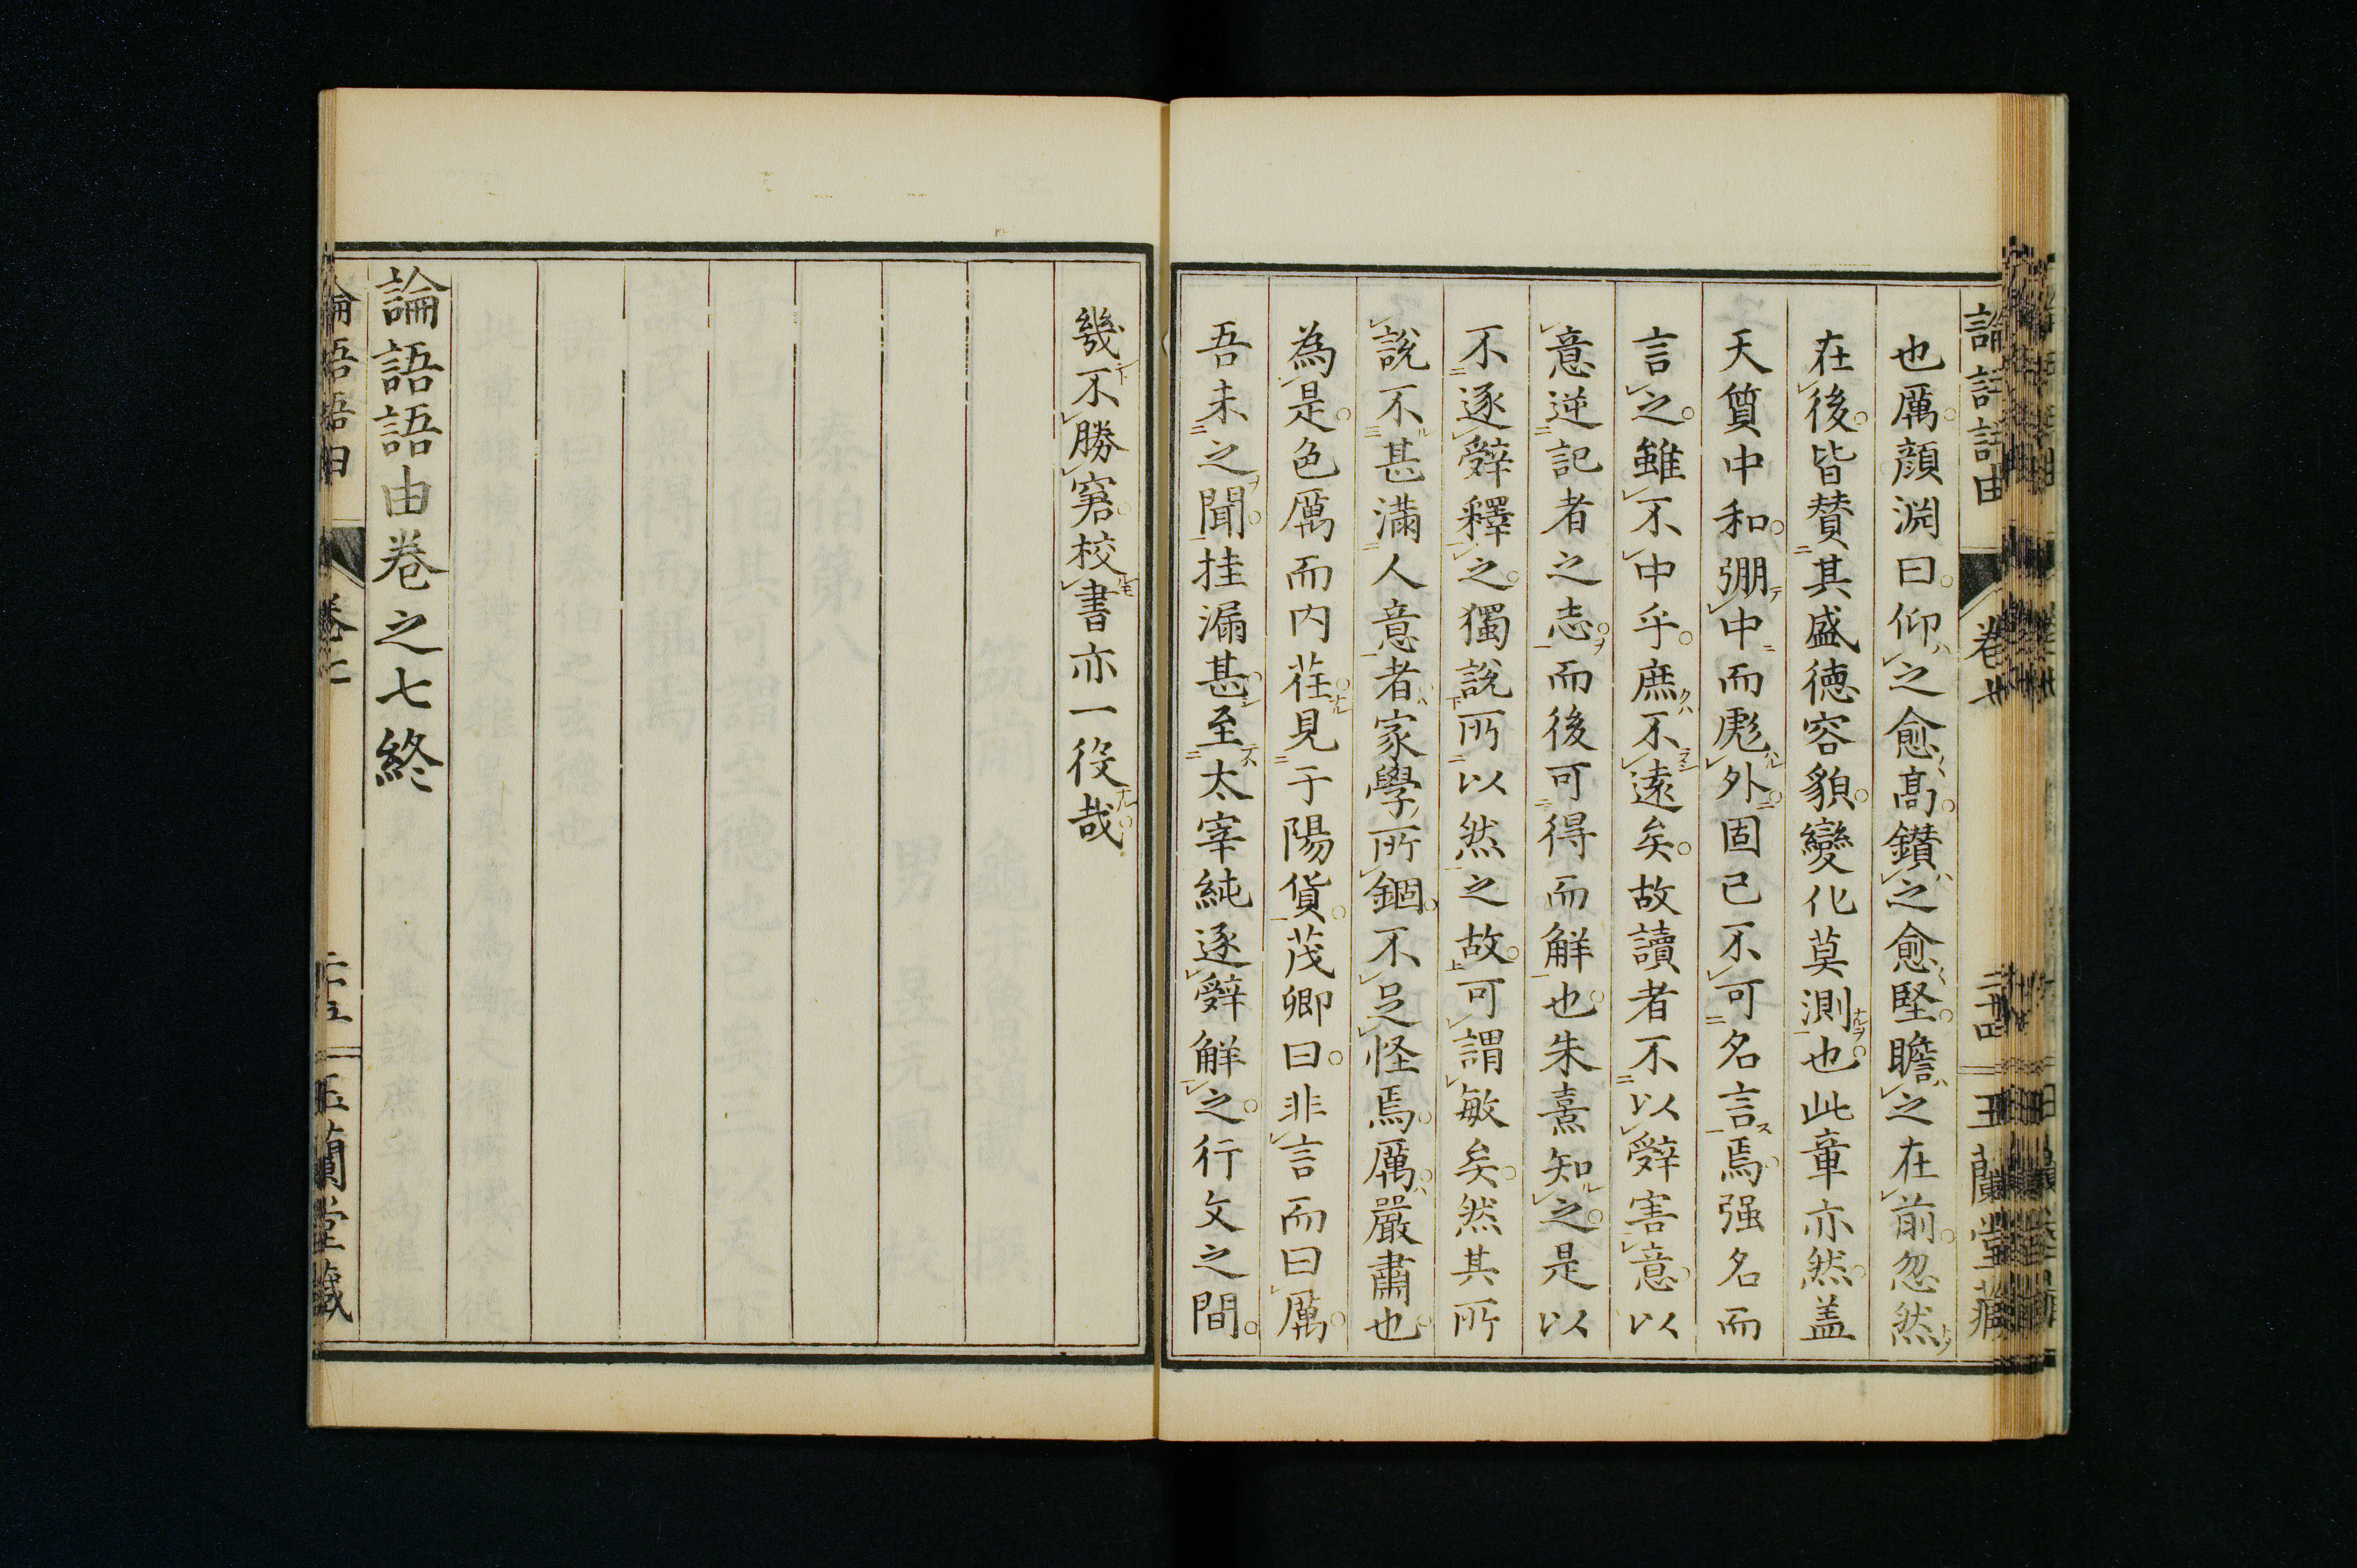 論語語由 卷七 二十四 玉蘭堂藏
也厲顏淵曰仰之愈高鑚之愈堅瞻之在前忽然
在後皆賛其盛德容貌變化莫測也此章亦然盖
天質中和弸中而彪外固已不可名言焉强名而
言之雖不中乎庶不遠矣故讀者不以辭害意以
意逆記者之志而後可得而解也朱熹知之是以
不逐辭釋之獨說所以然之故可謂敏矣然其所
說不甚滿人意者家學所錮不足怪焉厲嚴肅也
為是色厲而内荏見于陽貨茂卿曰非言而曰厲
吾未之聞挂漏甚至太宰純逐辭解之行文之間
幾不勝窘校書亦一役哉
論語語由卷之七終
論語語由 卷七 二十五 玉蘭堂藏